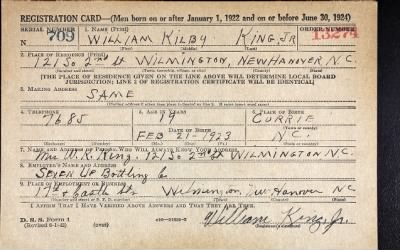 REGISTRATION CARD—(Men born on or after January 1, 1922 and on or before June 30, 1924)
SERIAL NUMBER 1. NAME (Print) ORDER NUMBER
N 709 WILLIAM KILBY KING, JR 13274
(First) (Middle) (Last)
2. PLACE OF RESIDENCE (Print)
121 So 2nd St WILMINGTON, NEW HANOVER N.C.
[THE PLACE OF RESIDENCE GIVEN ON THE LINE ABOVE WILL DETERMINE LOCAL BOARD
JURISDICTION; LINE 2 OF REGISTRATION CERTIFICATE WILL BE IDENTICAL]
3. MAILING ADDRESS
SAME
4. TELEPHONE 5. AGE IN YEARS 6. PLACE OF BIRTH
7685 19 CURRIE
DATE OF BIRTH
FEB 21 1923 N.C.
7. NAME AND ADDRESS OF PERSON WHO WILL ALWAYS KNOW YOUR ADDRESS
Mrs W. K. King, 121 So 2nd St WILMINGTON N.C.
8. EMPLOYER'S NAME AND ADDRESS
SEVEN UP Bottling Co
9. PLACE OF EMPLOYMENT OR BUSINESS
Castle St. Wilmington New Hanover NC
I AFFIRM THAT I HAVE VERIFIED ABOVE ANSWERS AND THAT THEY ARE TRUE.
D. S. S. Form 1
(Revised 6-1-42)
William King, Jr.